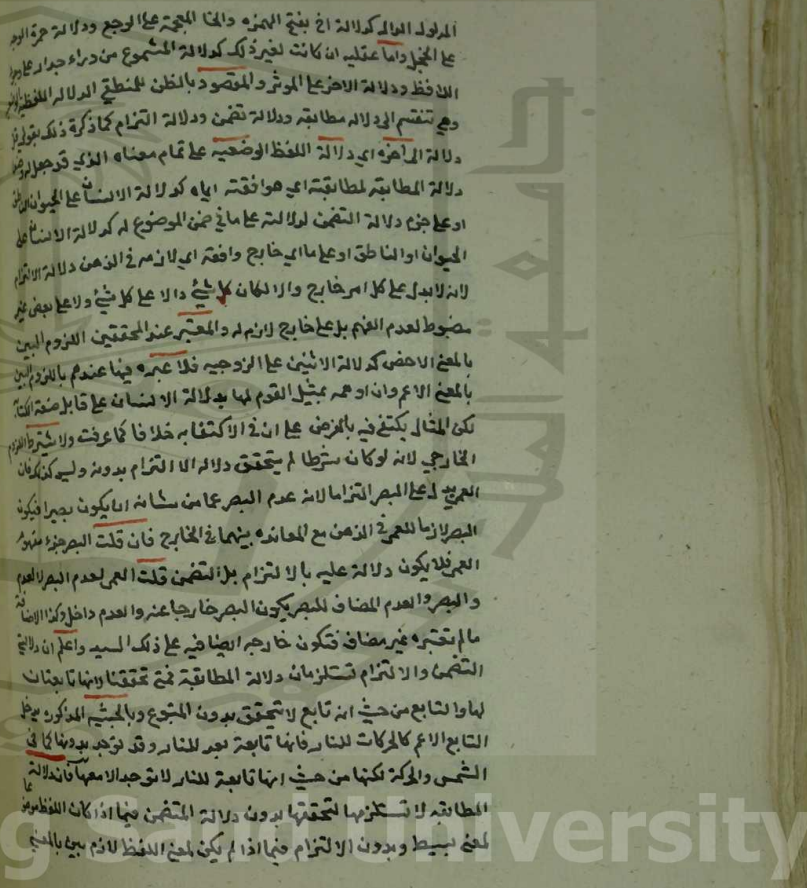 المدلول الدال كدلالة اخ بفتح الهمزة والخا المعجمة على الوجع ودلالة حمرة الوجه
على الخجل واما عقليه ان كانت لغير ذلك كدلالة المسموع من وراء جدار على وجود
اللافظ ودلالة الاثر على الموثر والمقصود بالنظر للمنطقي الدلاله اللفظية الوضعية
وهي تنقسم الى دلاله مطابقه ودلالة تضمن ودلالة التزام كما ذكرة ذلك بقولي
دلالة الى اخره اي دلالة اللفظ الوضعيه على تمام معناه الذي قد جعل له
دلالة المطابقه لمطابقته اي موافقته اياه كدلالة الانسان على الحيوان الناطق
او على جزء دلالة التضمن لدلالته على ما في ضمن الموضوع له كدلالة الانسان على
الحيوان او الناطق او على ما اي خارج وافقه اي لازمه في الذهن دلالة الالتزام
لانه لا يدل على كل امر خارج والا لكان كل شيء دالا على كل شيء ولا على بعض غير
مضبوط لعدم الفهم بل على خارج لازم له والمعتبر عند المحققين اللزوم البين
بالمعنى الاخص كدلالة الاثنين على الزوجيه فلا عبره فيها عندهم باللزوم البين
بالمعنى الاعم وان اوهمه تمثيل القوم لها بدلالة الانسان على قابل صنعة الكتابة
لكن المثال يكتفى فيه بالفرض على ان في الاكتفا به خلافا كما عرفت ولا يشترط اللزوم
الخارجي لانه لو كان شرطا لم يتحقق دلاله الالتزام بدونه وليس كذلك فان
العمى يدل على البصر التزاما لانه عدم البصر عما من شانه ان يكون بصيرا فيكون
البصر لازما للعمى في الذهن مع المعانده بينهما في الخارج فان قلت البصر جزء مفهوم
العمى فلا يكون دلالة عليه بالالتزام بل التضمن قلت العمى لعدم البصر لا العدم
والبصر والعدم المضاف للبصر يكون البصر خارجا عنه والعدم داخل وكذا الاضافة
ما لم تعتبره غير مضاف فتكون خارجه ايضا نبه على ذلك السيد واعلم ان دلالتي
التضمن والالتزام تستلزمان دلالة المطابقة فمتى تحققتا لانهما تابعتان
لها والتابع من حيث انه تابع لا يتحقق بدون المتبوع وبالحيثيه المذكوره يدخل
التابع الاعم كالحركات للنار فانها تابعة للنار وقد توجد بدونها كما في
الشمس والحركة لكنها من حيث انها تابعة للنار لا توجد الا معها فان دلالة
المطابقه لا تستلزمها لتحققها بدون دلالة التضمن فيما اذا كان اللفظ موضوعا
لمعنى بسيط وبدون الالتزام فيما اذا لم يكن لمعنى اللفظ لازم بين بالمعنى
جامعة الملك
g Saud University